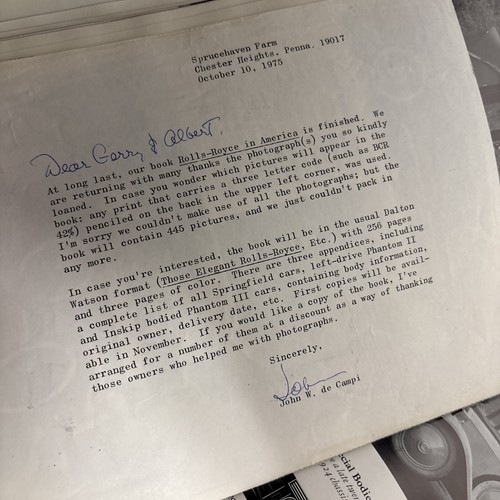 Sprucehaven Farm
Chester Heights, Penna. 19017
October 10, 1975
Dear Gerry & Albert,
At long last, our book Rolls-Royce in America is finished. We
are returning with many thanks the photograph(s) you so kindly
loaned. In case you wonder which pictures will appear in the
book; any print that carries a three letter code (such as BCR
42%) penciled on the back in the upper left corner, was used.
I'm sorry we couldn't make use of all the photographs; but the
book will contain 445 pictures, and we just couldn't pack in
any more.
In case you're interested, the book will be in the usual Dalton
Watson format (Those Elegant Rolls-Royce, Etc.) with 256 pages
and three pages of color. There are three appendices, including
a complete list of all Springfield cars, left-drive Phantom II
and Inskip bodied Phantom III cars, containing body information,
original owner, delivery date, etc. First copies will be avail-
able in November. If you would like a copy of the book, I've
arranged for a number of them at a discount as a way of thanking
those owners who helped me with photographs.
Sincerely,
John W. de Campi
cial Bodic
a late twe
924 chassi